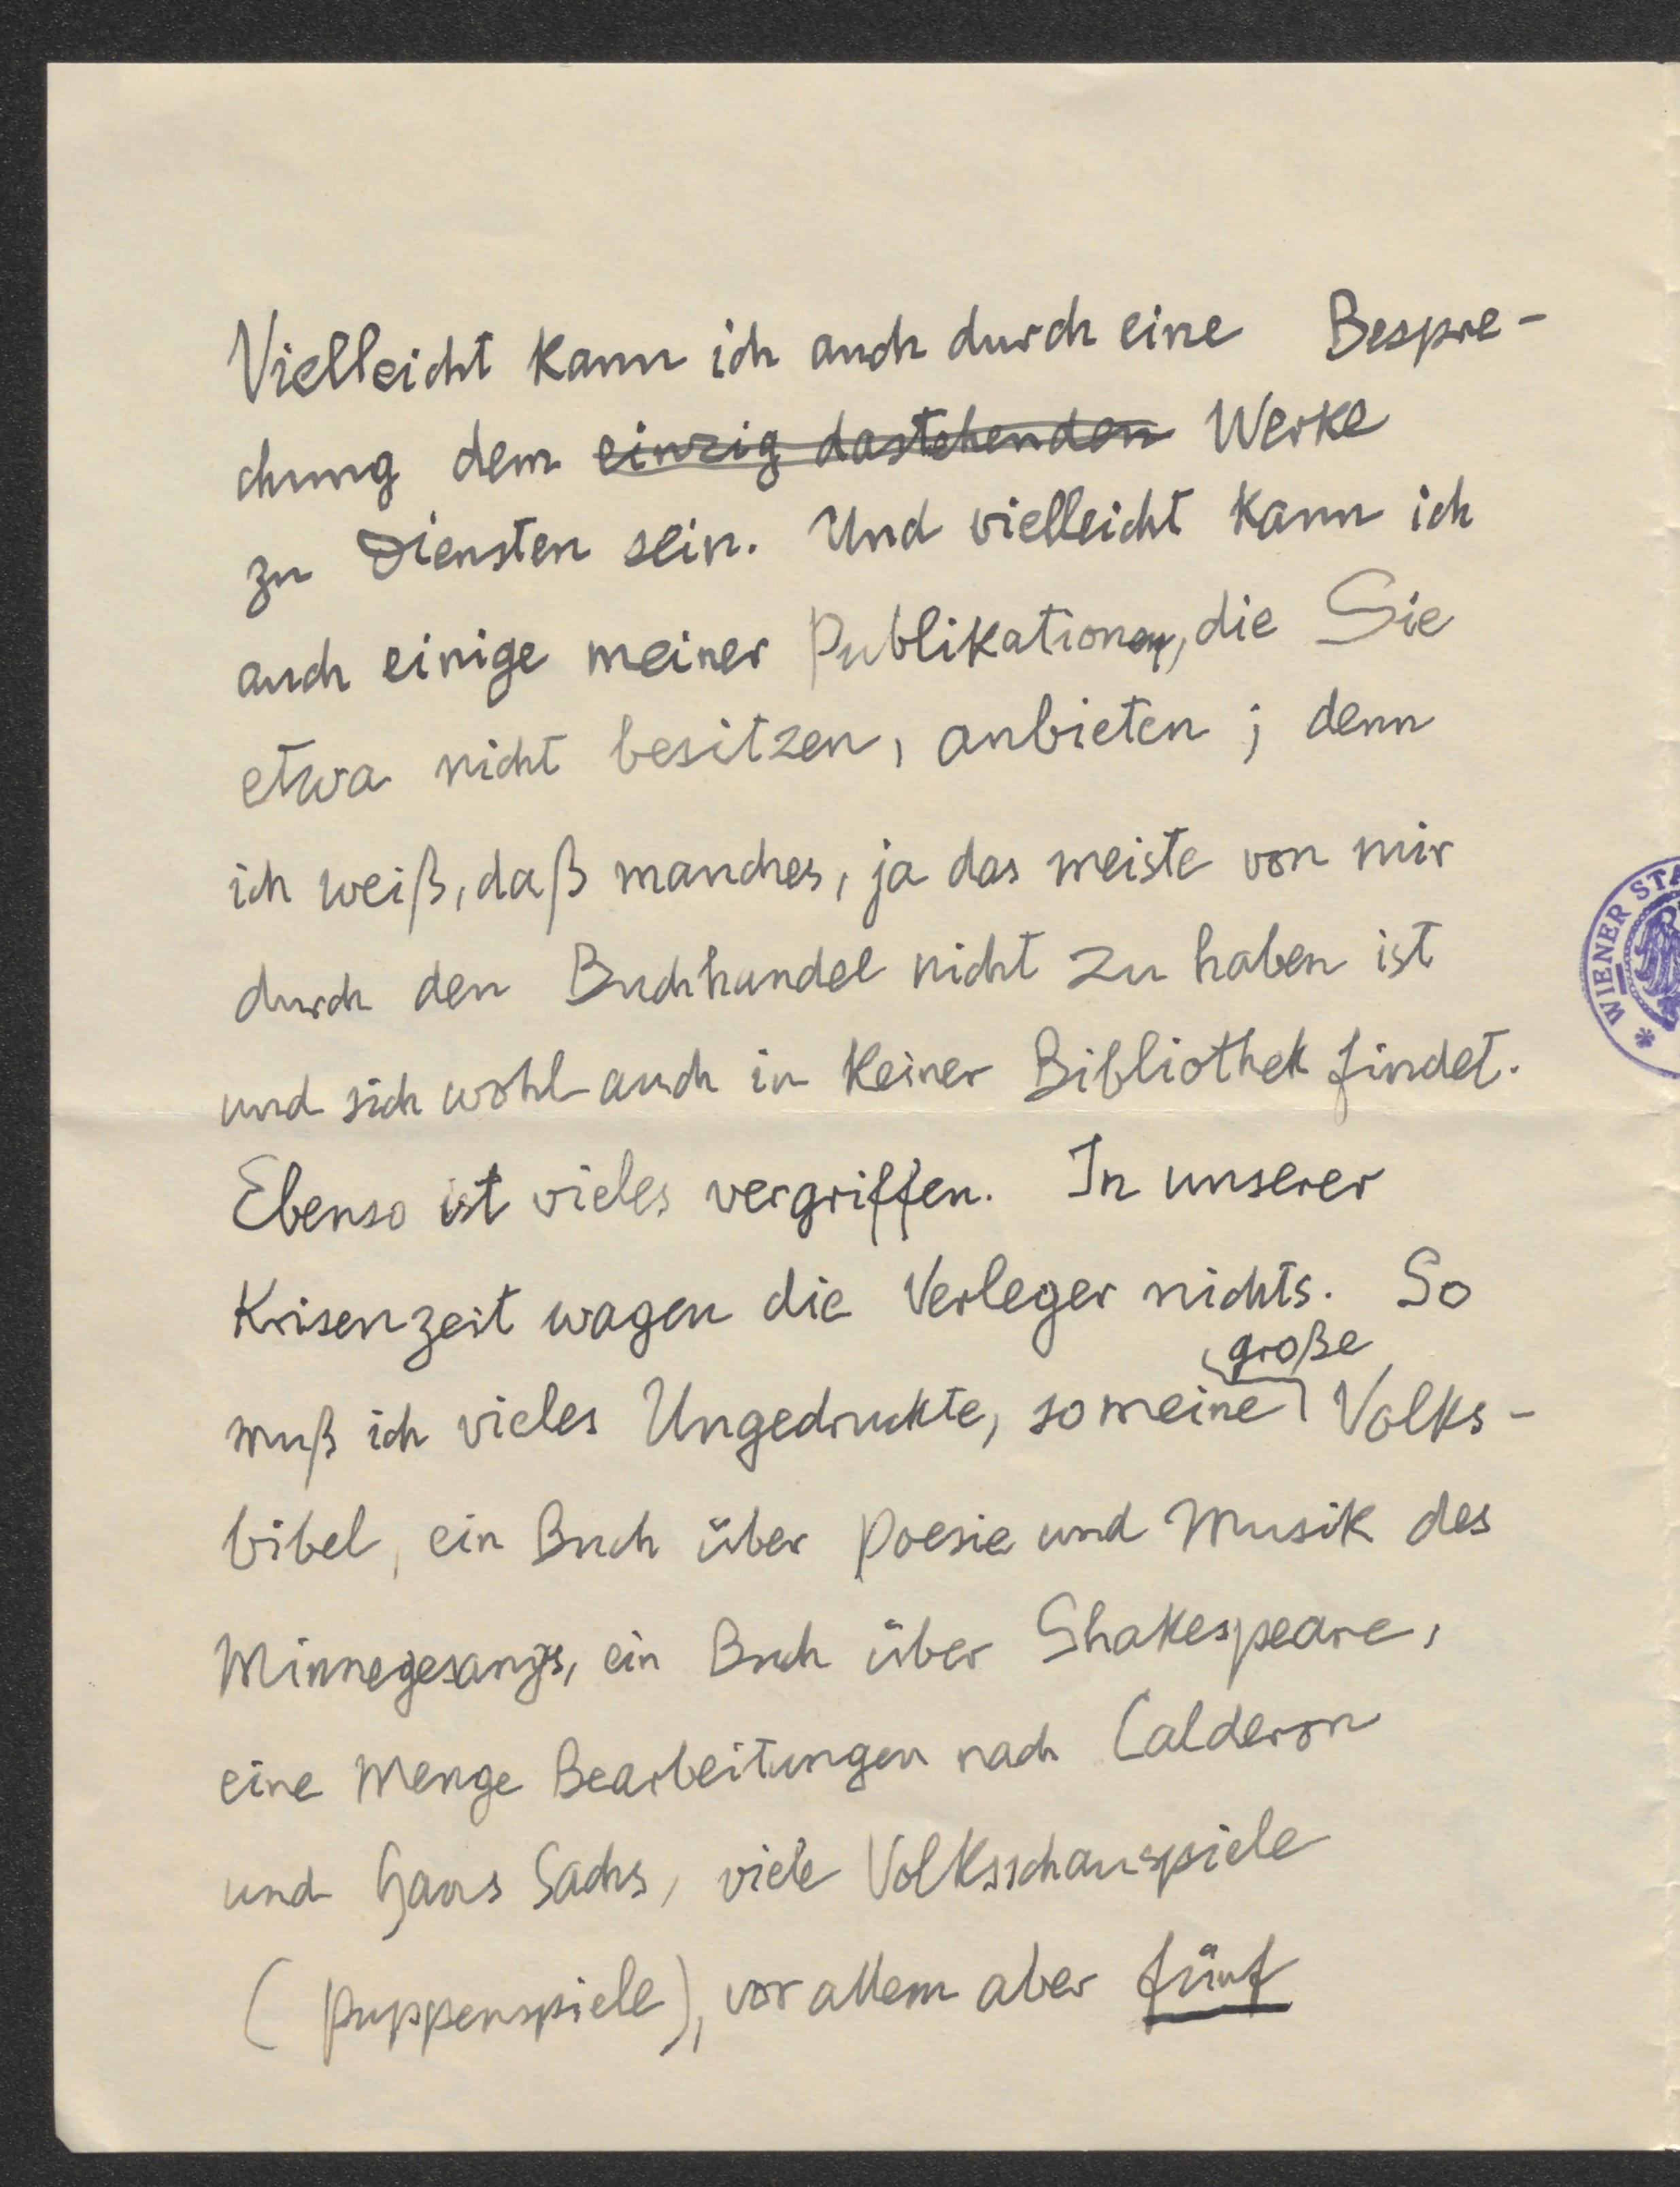 Vielleicht kann ich auch durch eine Bespre-
chung dem einzig dastehenden Werke
zu Diensten sein. Und vielleicht kann ich
auch einige meiner Publikationen, die Sie
etwa nicht besitzen, anbieten; denn
ich weiß, daß manches, ja das meiste von mir
durch den Buchhandel nicht zu haben ist
und sich wohl auch in keiner Bibliothek findet.
Ebenso ist vieles vergriffen. In unserer
Krisenzeit wagen die Verleger nichts. So
große
muß ich vieles Ungedruckte, so meine Volks-
bibel, ein Buch über Poesie und Musik des
Minnegesangs, ein Buch über Shakespeare,
eine Menge Bearbeitungen nach Calderon
und Hans Sachs, viele Volksschauspiele
(Puppenspiele), vor allem aber fünf
* WIENER STA